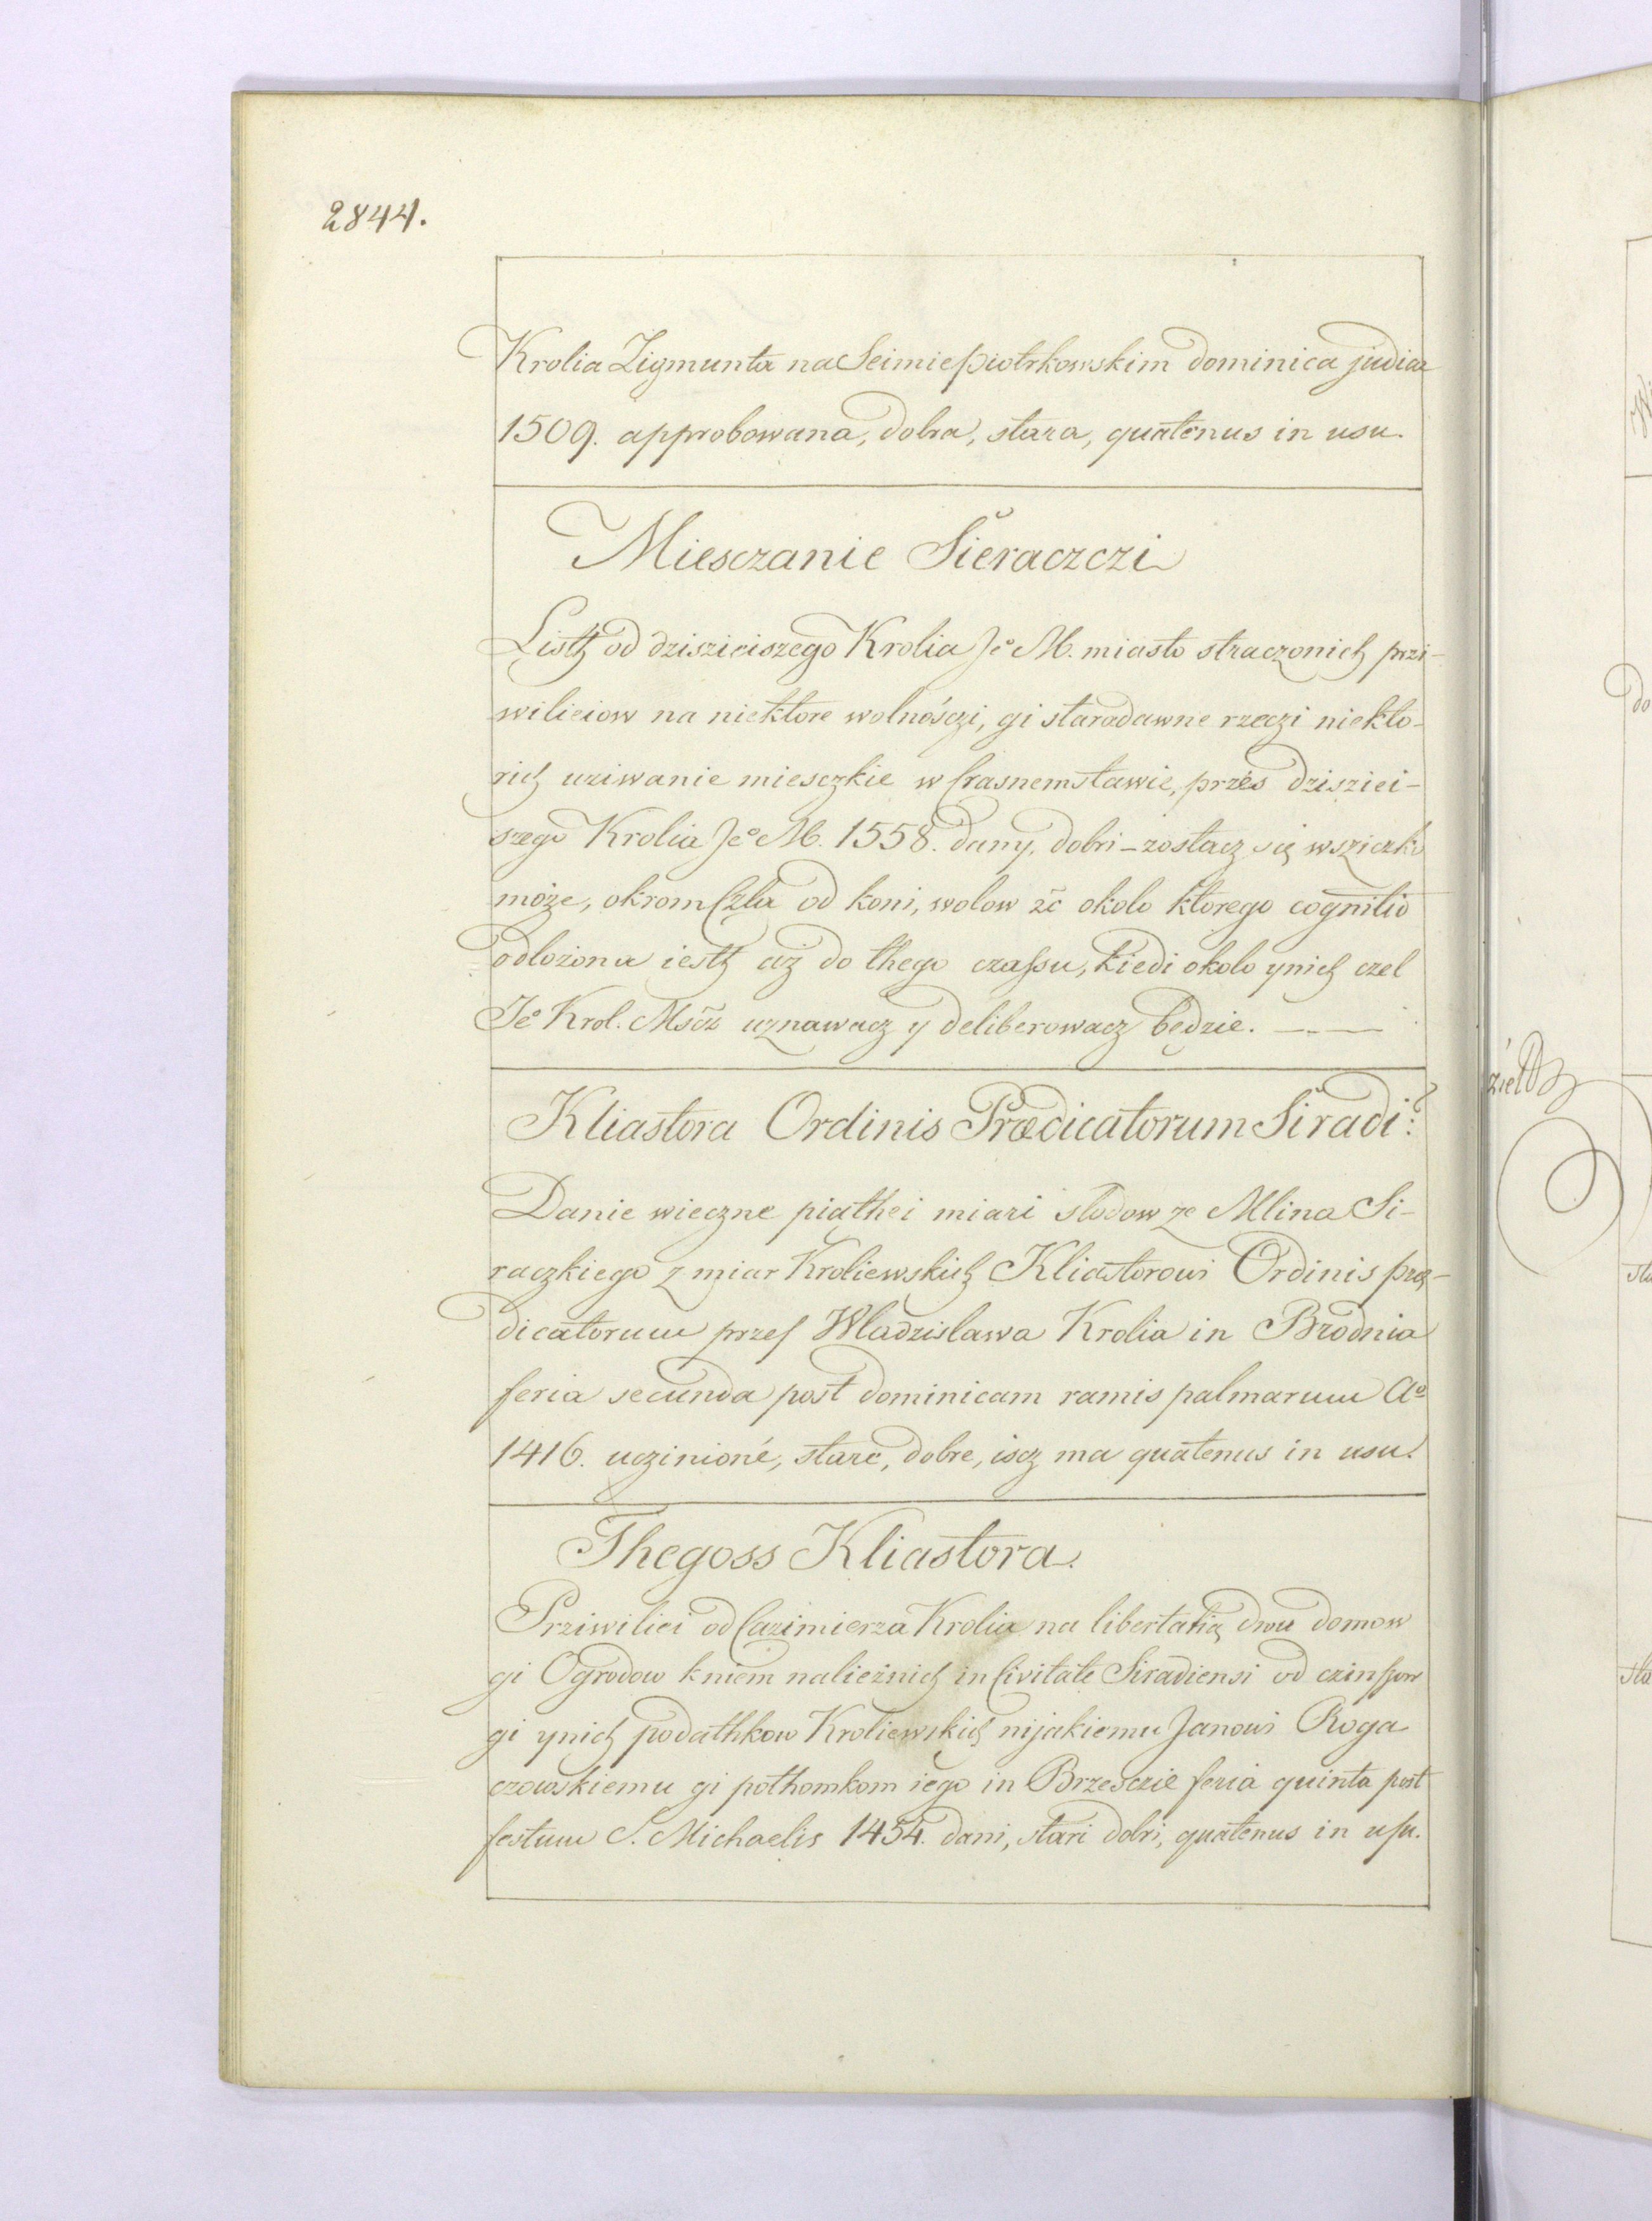 2844.
Krolia Zigmunta na Seimie piotrkowskim dominica judica
1509. approbowana, dobra, stara, quatenus in usu.
Miesczanie Sieraczczi
Listh od dzisziejszego Krolia Je° M. miasto straczonich przi-
wilieiow na niektore wolnośczi, gi staradawne rzeczi niekto-
rich uziwanie miesczkie w Crasnemstawie, przes dzisziei-
szego Krolia Je° M. 1558. dany, dobri - zostacz się wsziczko
może, okrom Czła od koni, wolow &c okolo ktorego cognitio
odlożona iesth aż do thego czassu, kiedi okolo ynich czel
Je° Krol. Mscz uznawacz y deliberowacz będzie.
Kliastora Ordinis Prædicatorum Siradi:
Danie wieczne piąthei miari slodow ze Mlina Si-
raczkiego z miar Kroliewskich Kliastorowi Ordinis præ-
dicatorum przes Wladzislawa Krolia in Brodnia
feria secunda post dominicam ramis palmarum A°
1416. uczinioné, stare, dobre, iscz ma quatenus in usu.
Thegoss Kliastora.
Prziwiliei od Cazimierza Krolia na libertatią dwu domow
gi Ogrodow kniem nalieżnich in Civitate Siradiensi od czinsow
gi ynich podathkow Kroliewskich nijakiemu Janowi Roga
czowskiemu gi pothomkom iego in Brzesczie feria quinta post
festum S. Michaelis 1454. dani, stari dobri, quatenus in usu.